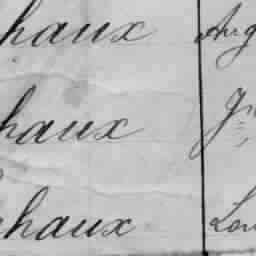 haux Aug
haux
haux Lou